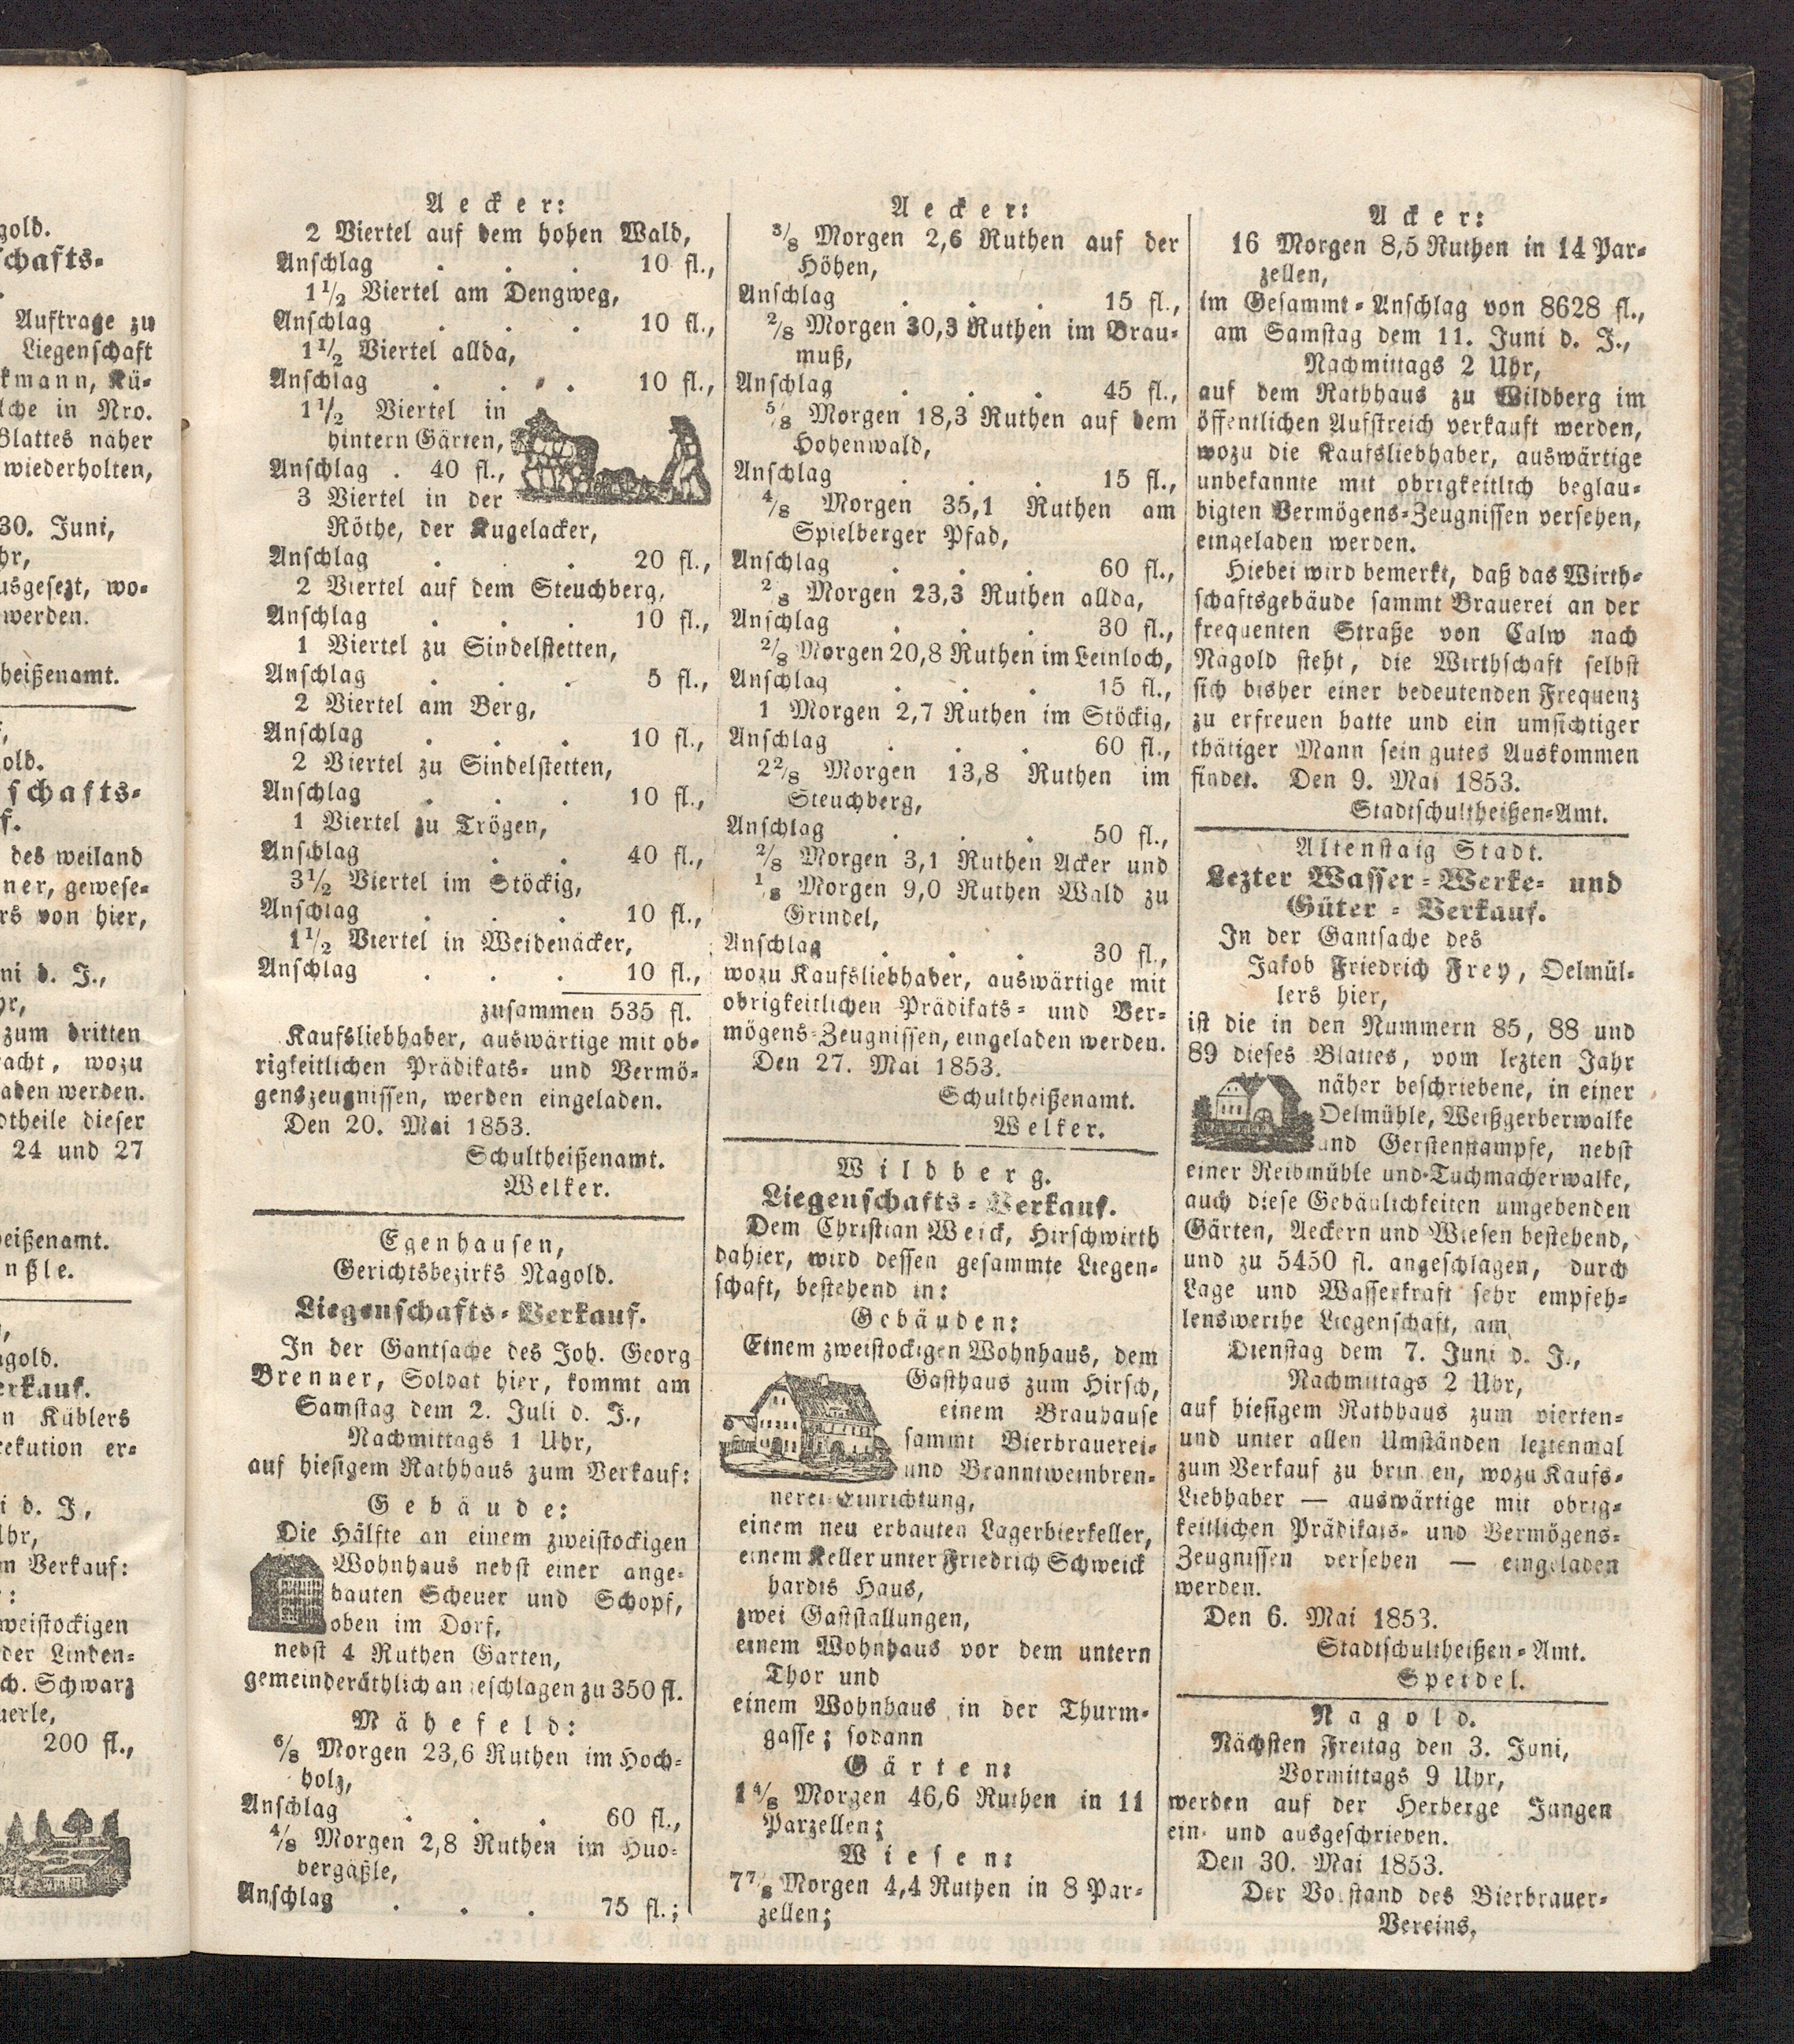 gold.
schafts-
Auftrage zu
Liegenschaft
kmann, Kü-
lche in Nro.
Blattes näher
wiederholten,
30. Juni,
hr,
usgesezt, wo-
werden.
heißenamt.
old.
schafts-
f.
des weiland
ner, gewese-
rs von hier,
ni d. J.,
hr,
zum dritten
acht, wozu
aden werden.
dtheile dieser
24 und 27
eißenamt.
nßle.
agold.
erkauf.
n Küblers
rekution er-
i d. J,
Uhr,
m Verkauf:
:
weistockigen
der Linden-
ch. Schwarz
uerle,
200 fl.,
Aecker:
2 Viertel auf dem hohen Wald,
Anschlag . . . 10 fl.,
1½ Viertel am Dengweg,
Anschlag . . . 10 fl.,
1½ Viertel allda,
Anschlag . . . 10 fl.,
1½ Viertel in
hintern Gärten,
Anschlag . 40 fl.,
3 Viertel in der
Röthe, der Kugelacker,
Anschlag . . . 20 fl.,
2 Viertel auf dem Steuchberg,
Anschlag . . . 10 fl.,
1 Viertel zu Sindelstetten,
Anschlag . . . 5 fl.,
2 Viertel am Berg,
Anschlag . . . 10 fl.,
2 Viertel zu Sindelstetten,
Anschlag . . . 10 fl.,
1 Viertel zu Trögen,
Anschlag . . . 40 fl.,
3½ Viertel im Stöckig,
Anschlag . . . 10 fl.,
1½ Viertel in Weidenäcker,
Anschlag . . . 10 fl.,
zusammen 535 fl.
Kaufsliebhaber, auswärtige mit ob-
rigkeitlichen Prädikats- und Vermö-
genszeugnissen, werden eingeladen.
Den 20. Mai 1853.
Schultheißenamt.
Welker.
Egenhausen,
Gerichtsbezirks Nagold.
Liegenschafts-Verkauf.
In der Gantsache des Joh. Georg
Brenner, Soldat hier, kommt am
Samstag dem 2. Juli d. J.,
Nachmittags 1 Uhr,
auf hiesigem Rathhaus zum Verkauf:
Gebäude:
Die Hälfte an einem zweistockigen
Wohnhaus nebst einer ange-
bauten Scheuer und Schopf,
oben im Dorf,
nebst 4 Ruthen Garten,
gemeinderäthlich angeschlagen zu 350 fl.
Mähefeld:
6/8 Morgen 23,6 Ruthen im Hoch-
holz,
Anschlag . . . 60 fl.,
4/8 Morgen 2,8 Ruthen im Huo-
bergäßle,
Anschlag . . . 75 fl.;
Aecker:
3/8 Morgen 2,6 Ruthen auf der
Höhen,
Anschlag . . . 15 fl.,
2/8 Morgen 30,3 Ruthen im Brau-
muß,
Anschlag . . . 45 fl.,
5/8 Morgen 18,3 Ruthen auf dem
Hohenwald,
Anschlag . . . 15 fl.,
4/8 Morgen 35,1 Ruthen am
Spielberger Pfad,
Anschlag . . . 60 fl.,
2/8 Morgen 23,3 Ruthen allda,
Anschlag . . . 30 fl.,
2/8 Morgen 20,8 Ruthen im Leinloch,
Anschlag . . . 15 fl.,
1 Morgen 2,7 Ruthen im Stöckig,
Anschlag . . . 60 fl.,
2 2/8 Morgen 13,8 Ruthen im
Steuchberg,
Anschlag . . . 50 fl.,
2/8 Morgen 3,1 Ruthen Acker und
1/8 Morgen 9,0 Ruthen Wald zu
Grindel,
Anschlag . . . 30 fl.,
wozu Kaufsliebhaber, auswärtige mit
obrigkeitlichen Prädikats- und Ver-
mögens-Zeugnissen, eingeladen werden.
Den 27. Mai 1853.
Schultheißenamt.
Welker.
Wildberg.
Liegenschafts-Verkauf.
Dem Christian Weick, Hirschwirth
dahier, wird dessen gesammte Liegen-
schaft, bestehend in:
Gebäuden:
Einem zweistockigen Wohnhaus, dem
Gasthaus zum Hirsch,
einem Brauhause
sammt Bierbrauerei-
und Branntweinbren-
nerei-Einrichtung,
einem neu erbauten Lagerbierkeller,
einem Keller unter Friedrich Schweick
hardts Haus,
zwei Gaststallungen,
einem Wohnhaus vor dem untern
Thor und
einem Wohnhaus in der Thurm-
gasse; sodann
Gärten:
1 4/8 Morgen 46,6 Ruthen in 11
Parzellen;
Wiesen:
7 7/8 Morgen 4,4 Ruthen in 8 Par-
zellen;
Acker:
16 Morgen 8,5 Ruthen in 14 Par-
zellen,
im Gesammt-Anschlag von 8628 fl.,
am Samstag dem 11. Juni d. J.,
Nachmittags 2 Uhr,
auf dem Rathhaus zu Wildberg im
öffentlichen Aufstreich verkauft werden,
wozu die Kaufsliebhaber, auswärtige
unbekannte mit obrigkeitlich beglau-
bigten Vermögens-Zeugnissen versehen,
eingeladen werden.
Hiebei wird bemerkt, daß das Wirth-
schaftsgebäude sammt Brauerei an der
frequenten Straße von Calw nach
Nagold steht, die Wirthschaft selbst
sich bisher einer bedeutenden Frequenz
zu erfreuen hatte und ein umsichtiger
thätiger Mann sein gutes Auskommen
findet. Den 9. Mai 1853.
Stadtschultheißen-Amt.
Altenstaig Stadt.
Lezter Wasser-Werke- und
Güter-Verkauf.
In der Gantsache des
Jakob Friedrich Frey, Oelmül-
lers hier,
ist die in den Nummern 85, 88 und
89 dieses Blattes, vom lezten Jahr
näher beschriebene, in einer
Oelmühle, Weißgerberwalke
und Gerstenstampfe, nebst
einer Reibmühle und Tuchmacherwalke,
auch diese Gebäulichkeiten umgebenden
Gärten, Aeckern und Wiesen bestehend,
und zu 5450 fl. angeschlagen, durch
Lage und Wasserkraft sehr empfeh-
lenswerthe Liegenschaft, am
Dienstag dem 7. Juni d. J.,
Nachmittags 2 Uhr,
auf hiesigem Rathhaus zum vierten-
und unter allen Umständen leztenmal
zum Verkauf zu brin en, wozu Kaufs-
Liebhaber — auswärtige mit obrig-
keitlichen Prädikats- und Vermögens-
Zeugnissen versehen — eingeladen
werden.
Den 6. Mai 1853.
Stadtschultheißen-Amt.
Speidel.
Nagold.
Nächsten Freitag den 3. Juni,
Vormittags 9 Uhr,
werden auf der Herberge Jungen
ein- und ausgeschrieben.
Den 30. Mai 1853.
Der Vorstand des Bierbrauer-
Vereins.